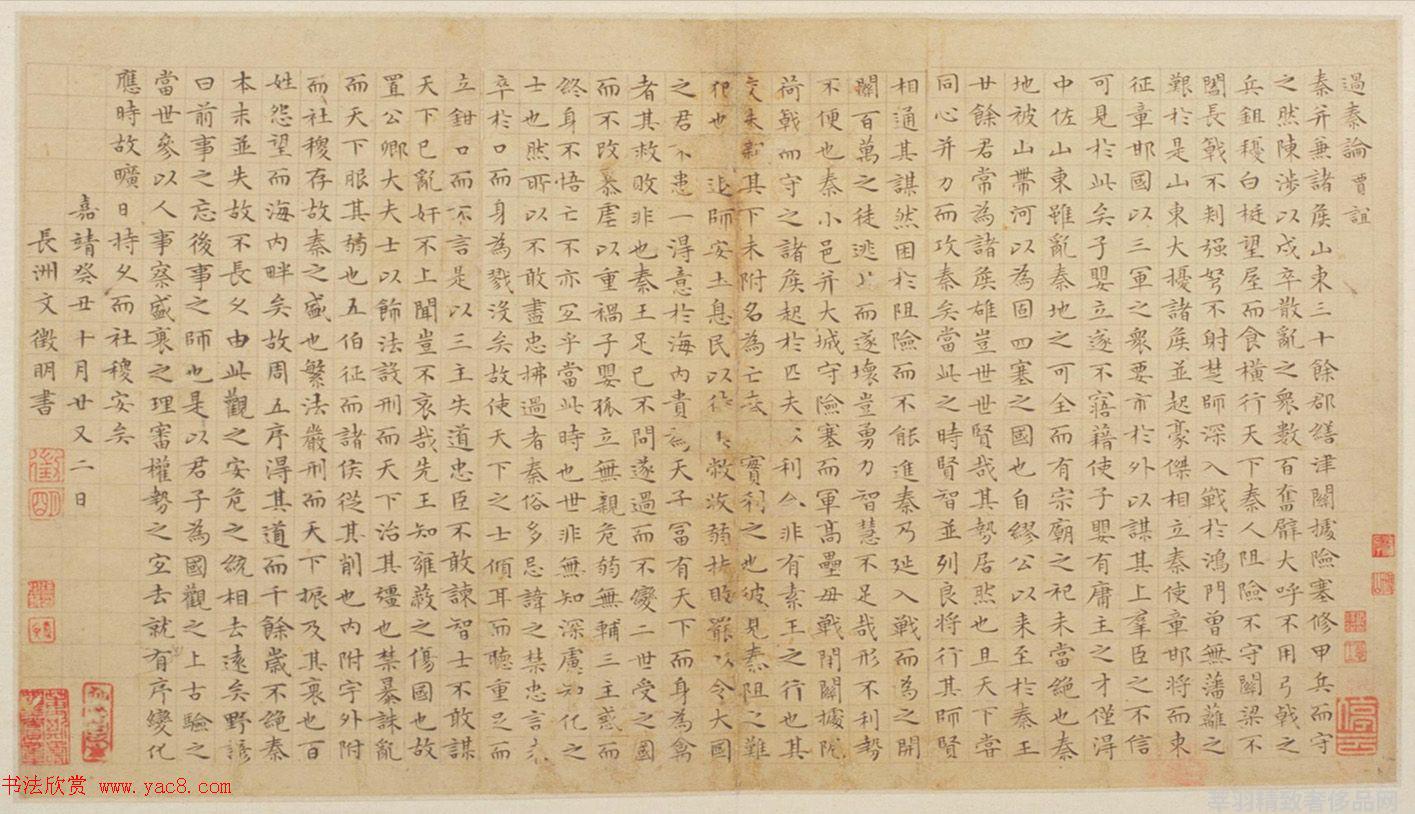 過秦論 賈誼
秦并兼諸侯山東三十餘郡繕津關據險塞修甲兵而守
之然陳涉以戍卒散亂之衆數百奮臂大呼不用弓戟之
兵鉏耰白梃望屋而食橫行天下秦人阻險不守關梁不
闔長戟不刺强弩不射楚師深入戰於鴻門曾無藩籬之
艱於是山東大擾諸侯並起豪傑相立秦使章邯將而東
征章邯國以三軍之衆要市於外以謀其上羣臣之不信
可見於此矣子嬰立遂不寤藉使子嬰有庸主之才僅得
中佐山東雖亂秦地之可全而有宗廟之祀未當絕也秦
地被山帶河以為固四塞之國也自繆公以来至於秦王
廿餘君常為諸侯雄豈世世賢哉其勢居然也且天下嘗
同心并力而攻秦矣當此之時賢智並列良將行其師賢
相通其謀然困於阻險而不能進秦乃延入戰而為之開
關百萬之徒逃而遂壞豈勇力智慧不足哉形不利勢
不便也秦小邑并大城守險塞而軍高壘毋戰閉關據阨
荷戟而守之諸侯起於匹夫利非有素王之行也其
交未親其下未附名為亡秦實利之也彼見秦阻之難
犯也退師安土息民以待敝收弱扶罷以令大國
之君不患一得意於海内貴為天子冨有天下而身為禽
者其救敗非也秦王足已不問遂過而不變二世受之國
而不改暴虐以重禍子嬰孤立無親危弱無輔三主惑而
終身不悟亡不亦宜乎當此時也世非無知深慮知化之
士也然所以不敢盡忠拂過者秦俗多忌諱之禁忠言未
卒於口而身為戮沒矣故使天下之士傾耳而聽重足而
立鉗口而不言是以三主失道忠臣不敢諫智士不敢謀
天下已亂奸不上聞豈不哀哉先王知雍蔽之傷國也故
置公卿大夫士以飾法設刑而天下治其彊也禁暴誅亂
而天下服其弱也五伯征而諸侯從其削也内附宇外附
而社稷存故秦之盛也繁法嚴刑而天下振及其衰也百
姓怨望而海内畔矣故周五序得其道而千餘歲不絕秦
本末並失故不長久由此觀之安危之統相去遠矣野諺
曰前事之忘後事之師也是以君子為國觀之上古驗之
當世參以人事察盛衰之理審權勢之宜去就有序變化
應時故曠日持久而社稷安矣
嘉靖癸丑十月廿又二日
長洲文徵明書
书法欣赏 www.yac8.com
莘羽精致奢侈品网